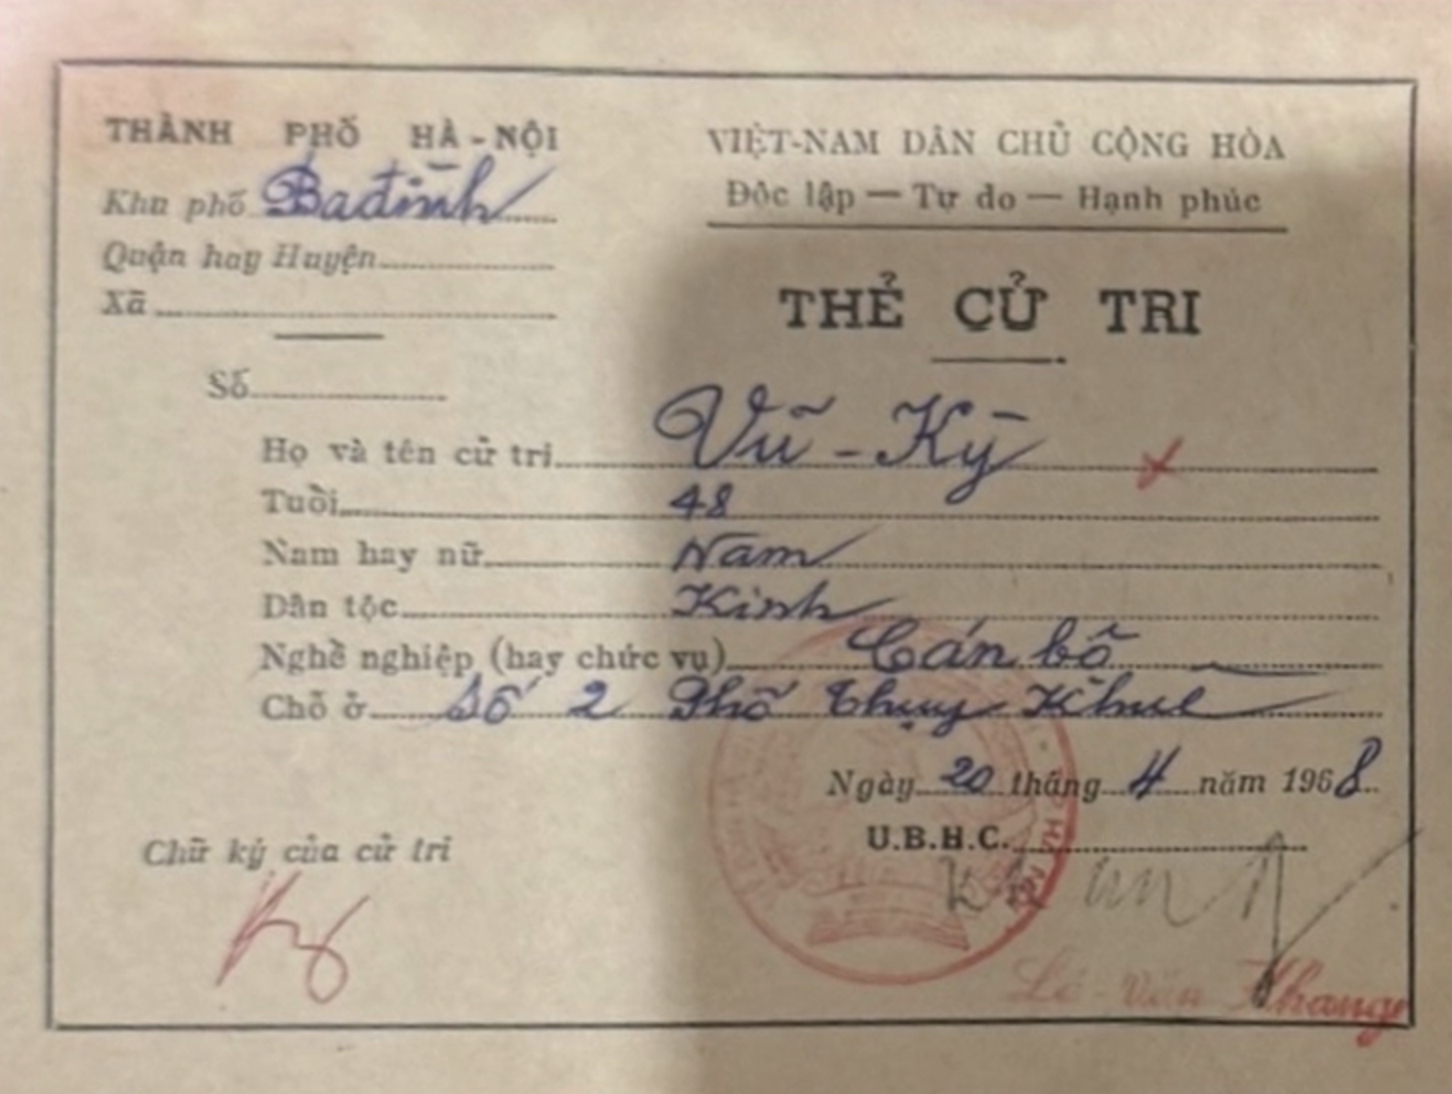 THÀNH PHỐ HÀ-NỘI
Khu phố Ba đình
Quận hay Huyện
Xã
Số
VIỆT-NAM DÂN CHỦ CỘNG HÒA
Độc lập — Tự do — Hạnh phúc
THẺ CỬ TRI
Họ và tên cử tri Vũ - Kỳ
Tuổi 48
Nam hay nữ Nam
Dân tộc Kinh
Nghề nghiệp (hay chức vụ) Cán bộ
Chỗ ở Số 2 Phố Thụy Khuê
Ngày 20 tháng 4 năm 1968
U.B.H.C.
Chữ ký của cử tri
Kỳ
Lê - Văn Khang